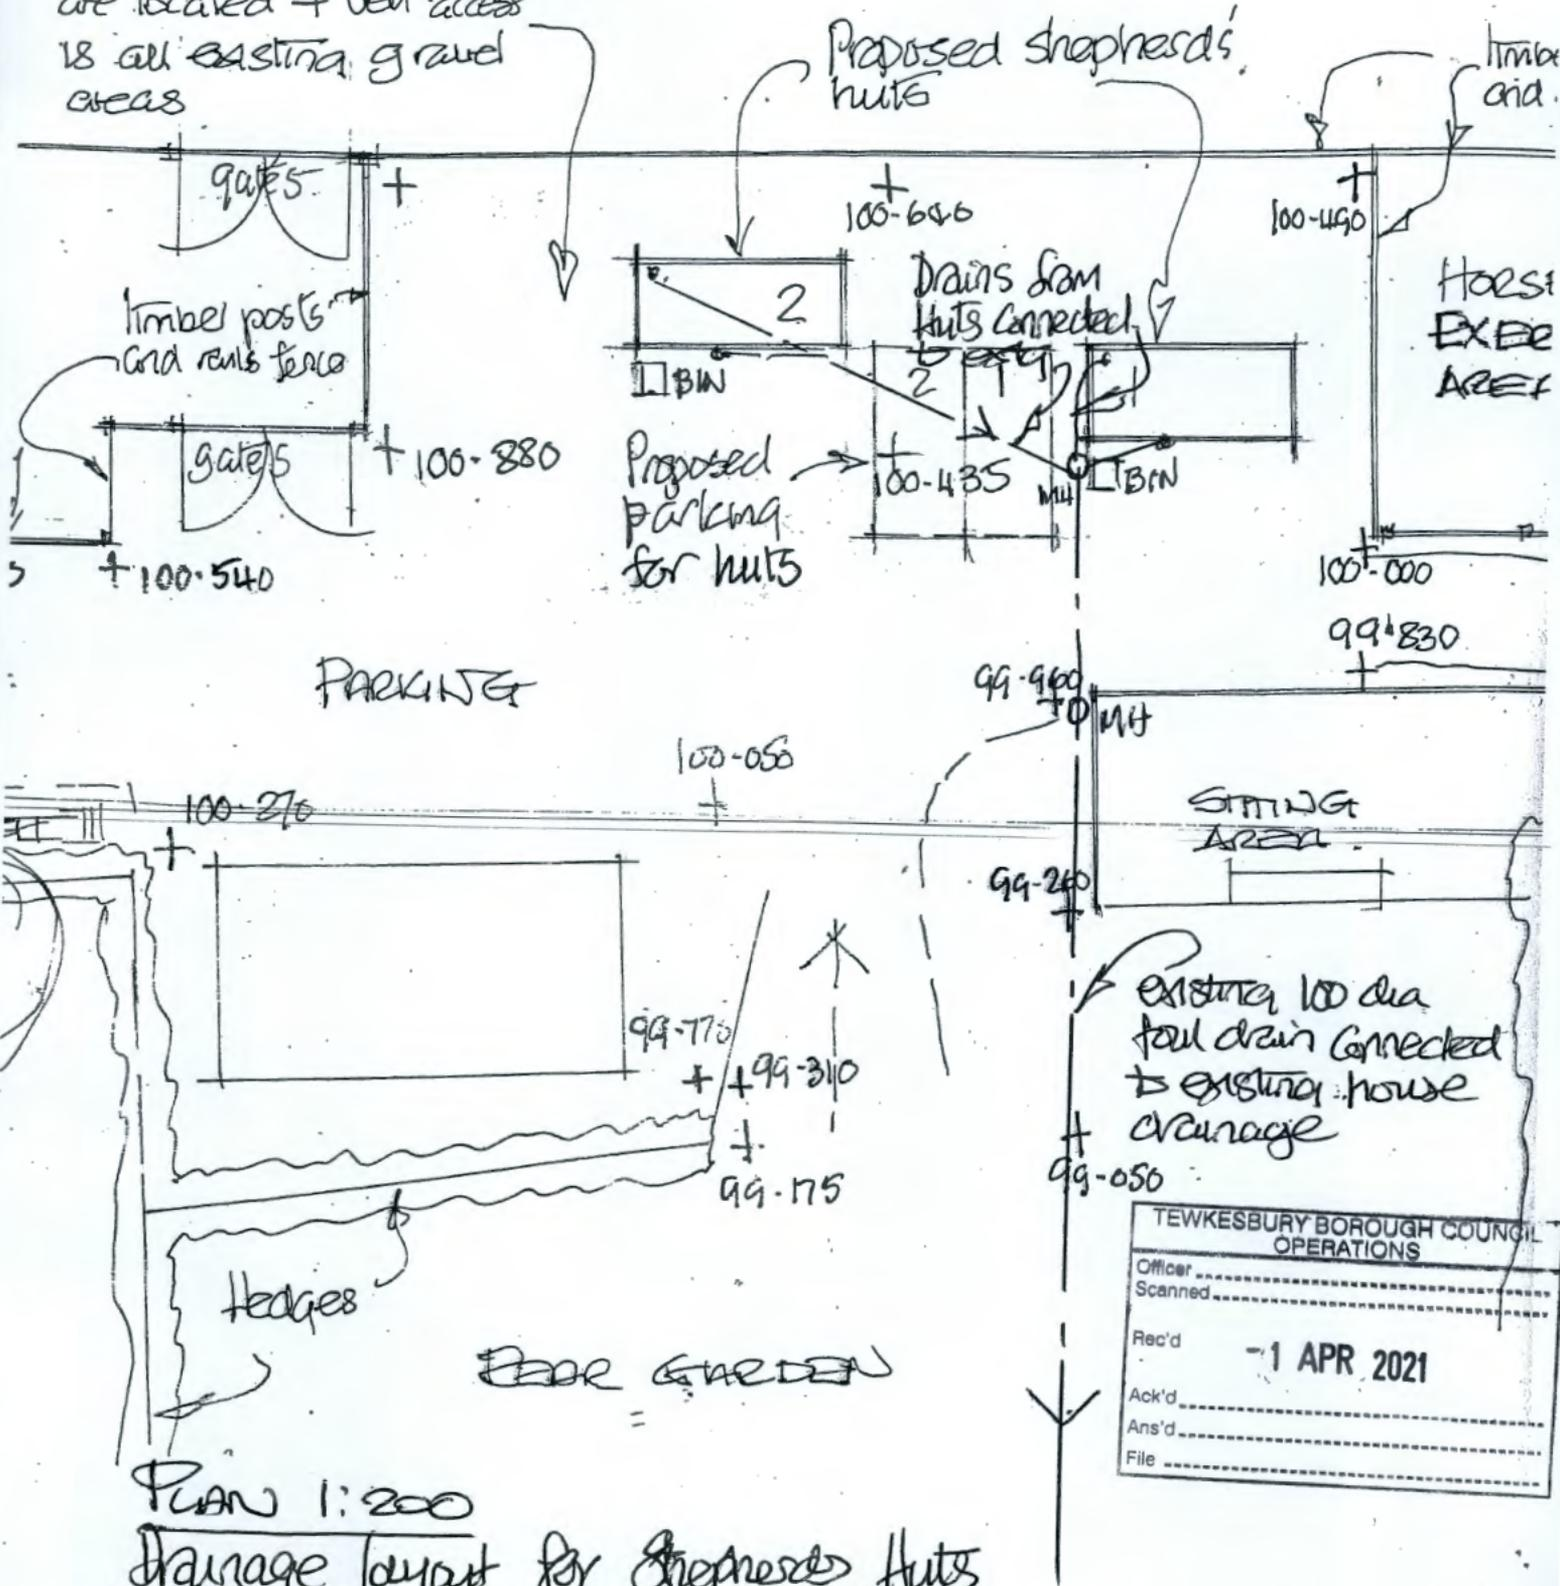 are located + veh access
is all existing gravel
areas
Proposed shepherds'
huts
and
gates
100-640
100-490
timber posts
and rails fence
2
Drains from
Huts Connected
to extg
HORSE
AREA
BIN
2
1
1
gates
100.880
Proposed
parking
for huts
100-435
MH
BIN
100.540
100-000
99.830
PARKING
99-960
MH
100-050
100-270
SITTING
AREA
99-260
existing 100 dia
foul drain connected
to existing house
drainage
99-770
99-310
99-175
99-050
Hedges
REAR GARDEN
TEWKESBURY BOROUGH COUNCIL
OPERATIONS
Officer
Scanned
Rec'd
-1 APR 2021
Ack'd
Ans'd
File
PLAN 1:200
Drainage layout for Shepherds Huts